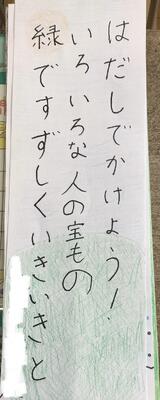 はだしでかけよう!
いろいろな人の宝もの
緑ですずしくいきいきと